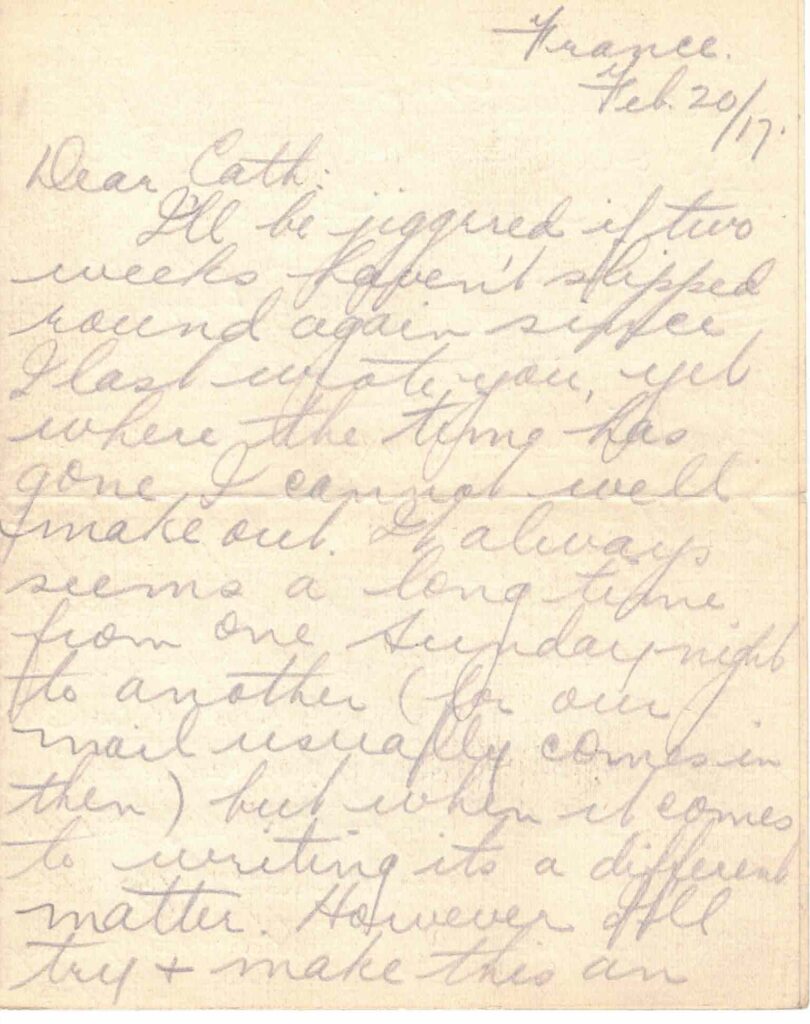 France.
Feb. 20/17.
Dear Cath:
I'll be jiggered if two
weeks haven't slipped
round again since
I last wrote you, yet
where the time has
gone I cannot well
make out. It always
seems a long time
from one Sunday night
to another (for our
mail usually comes in
then) but when it comes
to writing its a different
matter. However I'll
try + make this an